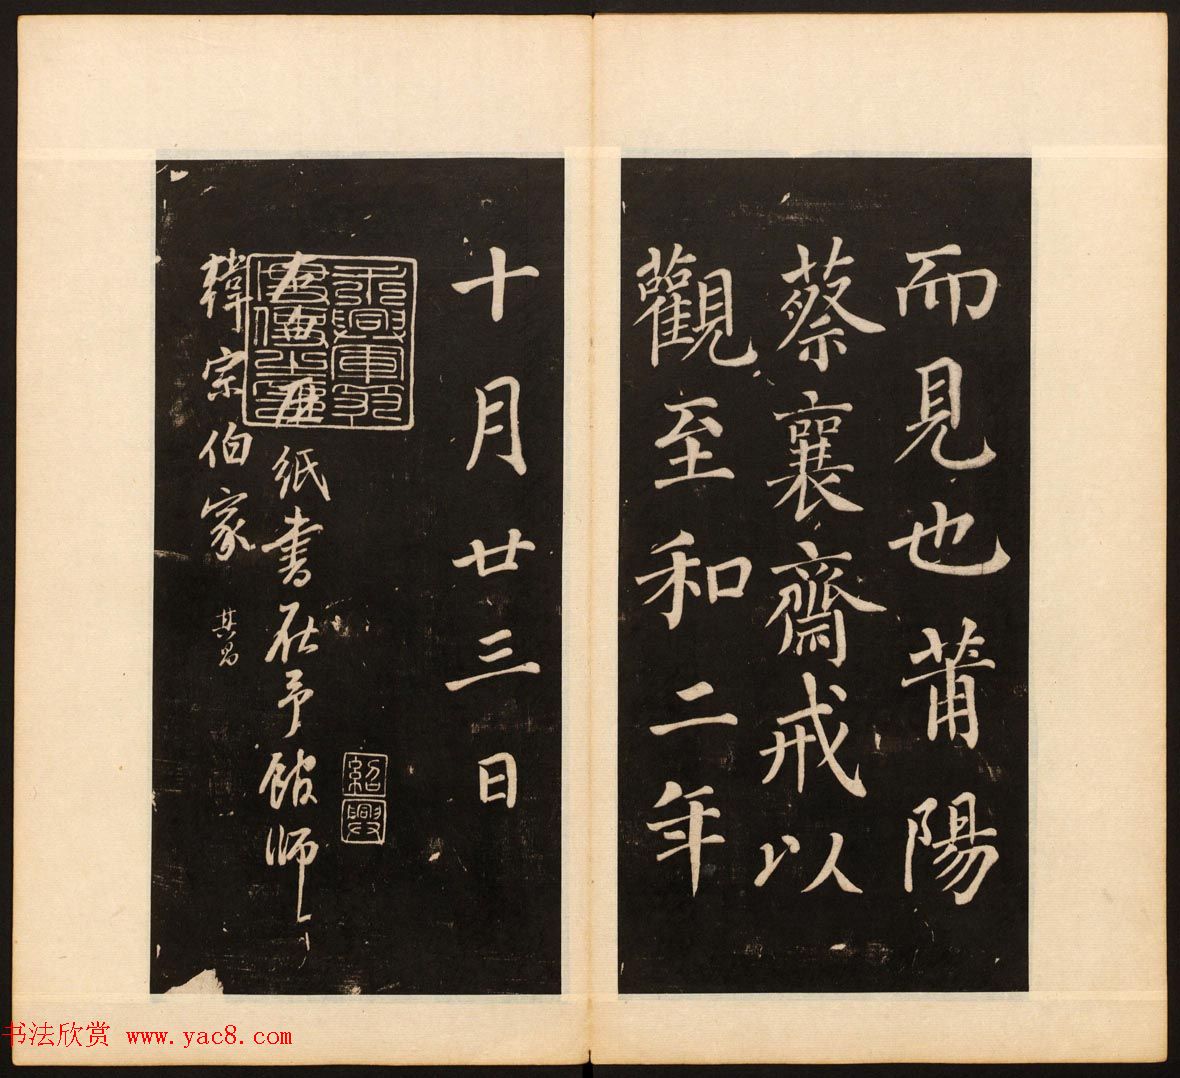 而見也莆陽
蔡襄齋戒以
觀至和二年
十月廿三日
紹興
永興軍節
度使之印
紙書在予館師
韓宗伯家 其昌
书法欣赏 www.yac8.com